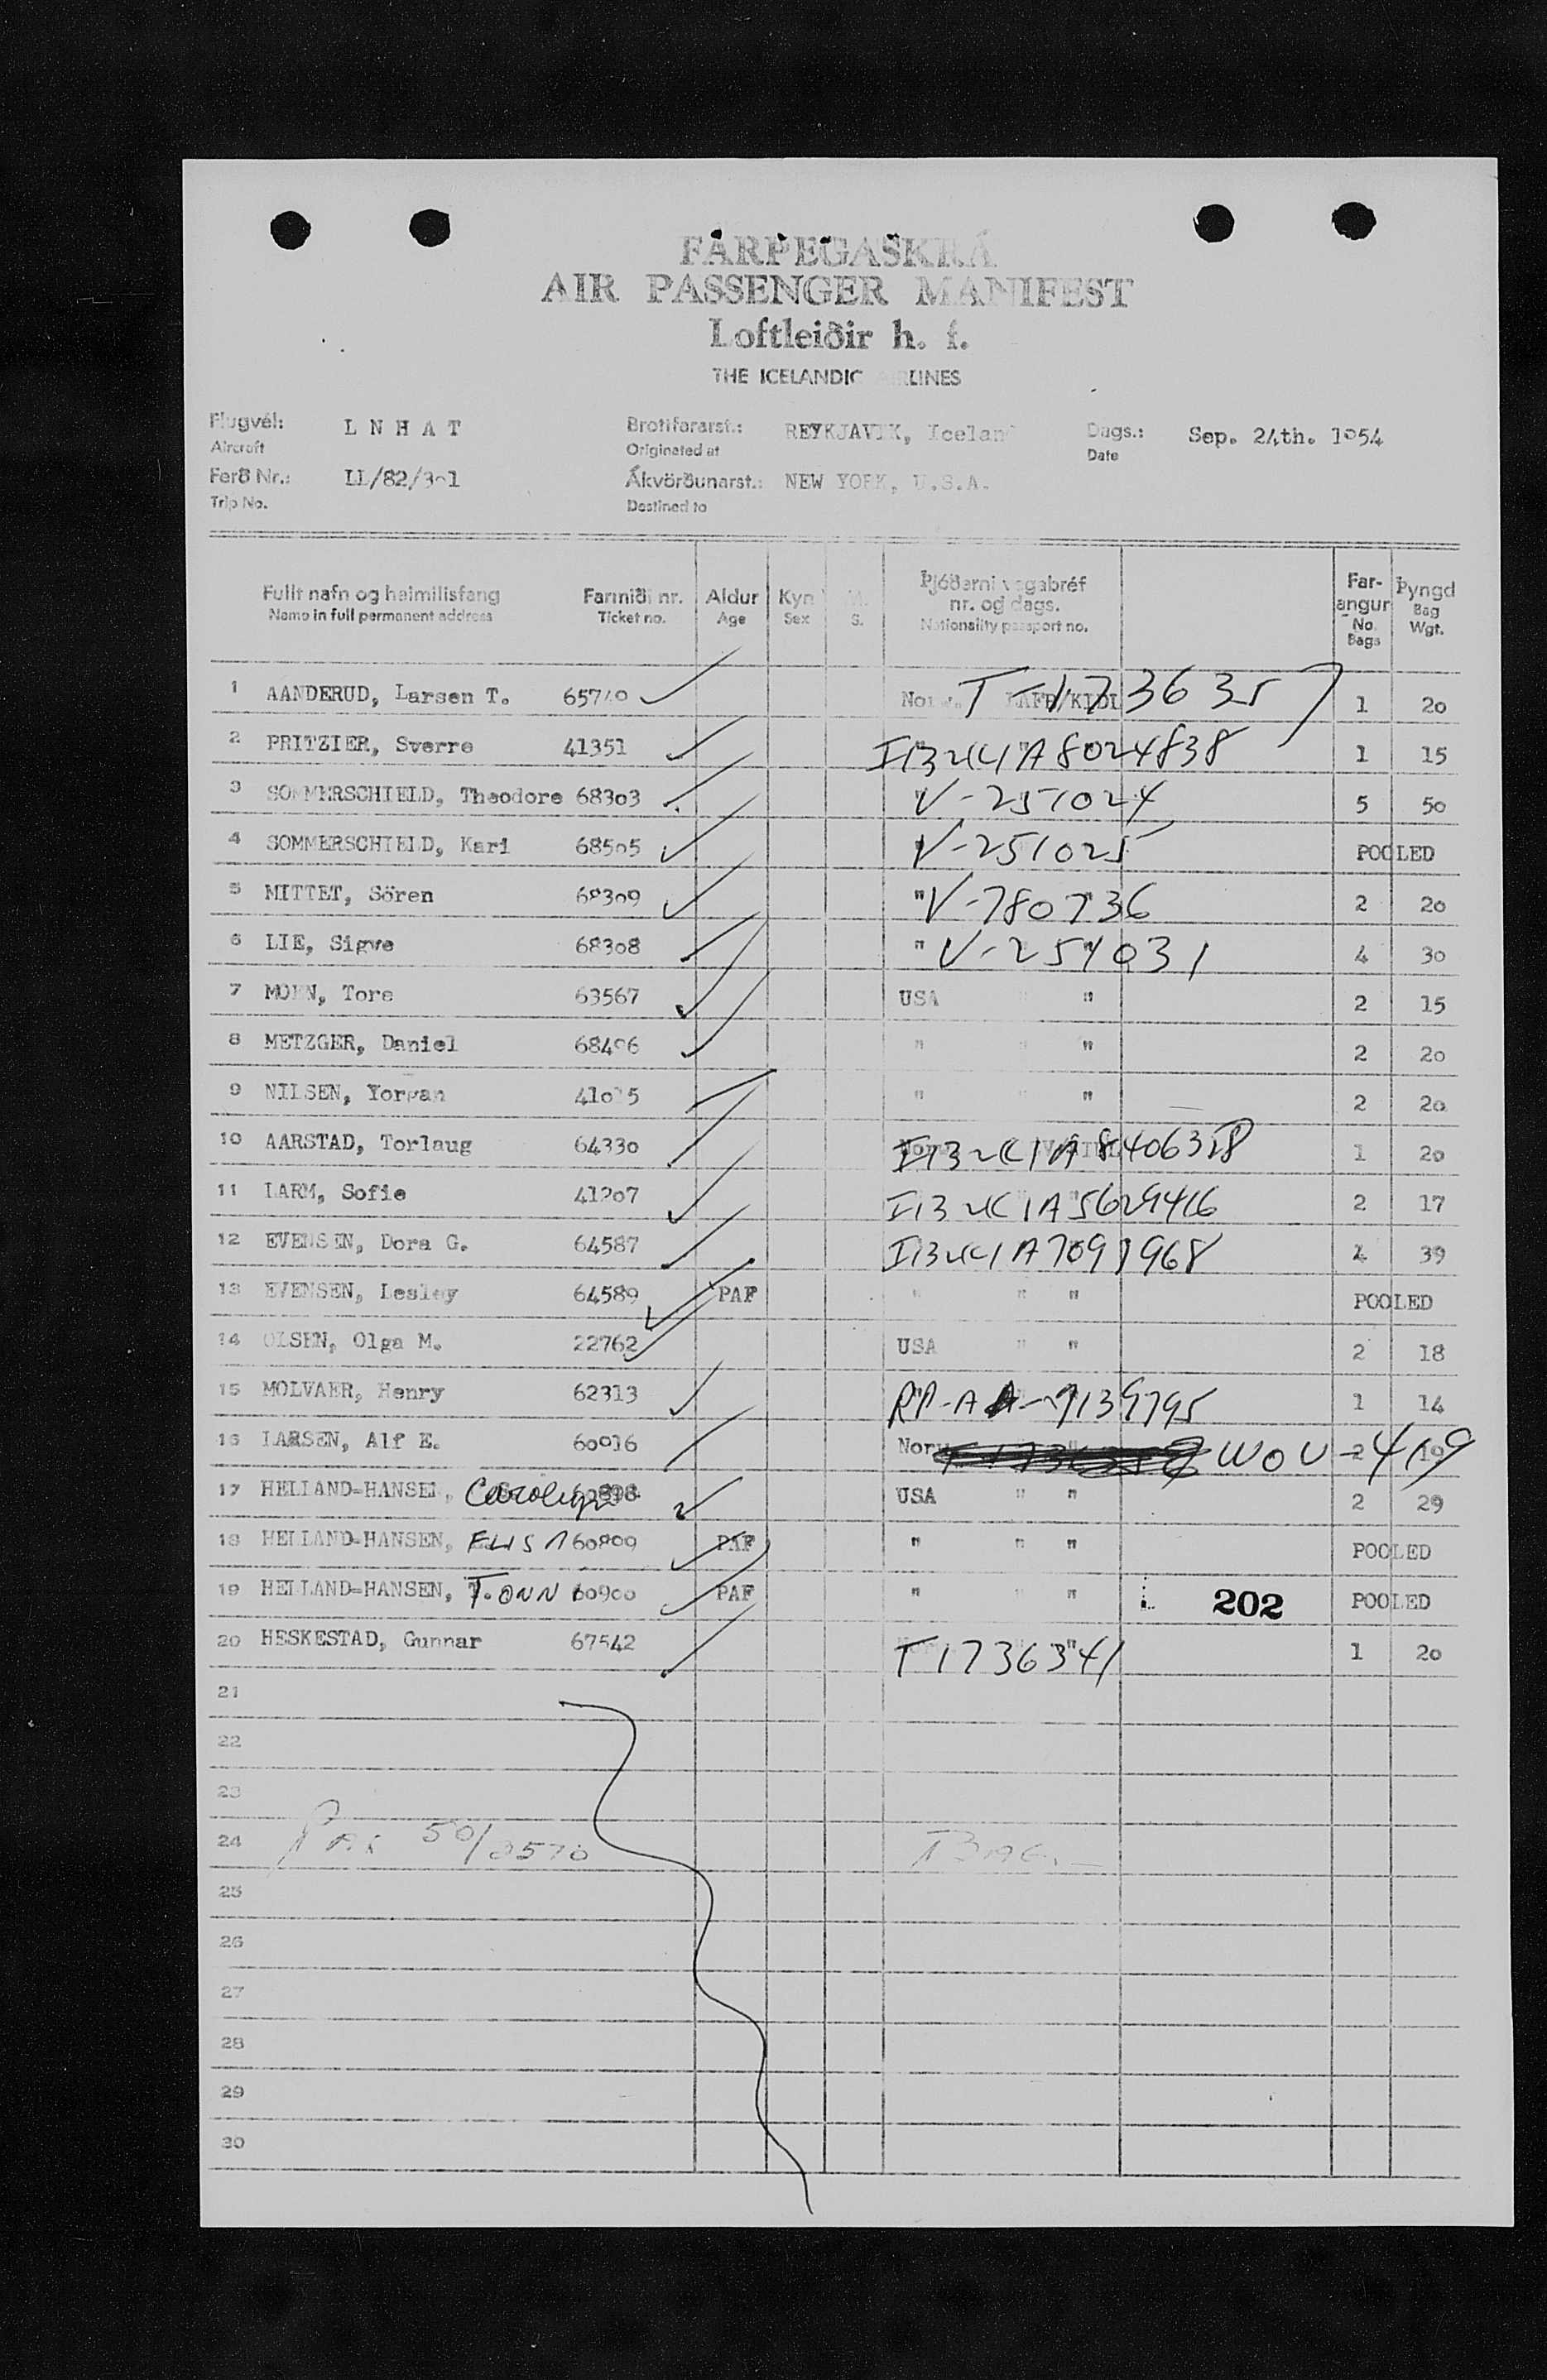 FARÞEGASKRÁ
AIR PASSENGER MANIFEST
Loftleiðir h. f.
THE ICELANDIC AIRLINES
Flugvél: L N H A T Brottfararst.: REYKJAVIK, Iceland Dags.: Sep. 24th. 1954
Aircraft Originated at Date
Ferð Nr.: LL/82/301 Ákvörðunarst.: NEW YORK, U.S.A.
Trip No. Destined to
Fullt nafn og heimilisfang Farmiði nr. Aldur Kyn M. Þjóðerni vegabréf nr. og dags. Far-angur Þyngd
Name in full permanent address Ticket no. Age Sex S. Nationality passport no. No. Bags Bag Wgt.
1 AANDERUD, Larsen T. 65740 T-1736357 1 20
2 PRITZIER, Sverre 41351 A8024838 1 15
3 SOMMERSCHIELD, Theodore 68303 V-251024 5 50
4 SOMMERSCHIELD, Kari 68505 V-251025 POOLED
5 MITTET, Sören 68309 " V-780736 2 20
6 LIE, Sigve 68308 " V-251031 4 30
7 MOHN, Tore 63567 USA " " 2 15
8 METZGER, Daniel 68496 " " " 2 20
9 NILSEN, Yorgan " " " 2 20
10 AARSTAD, Torlaug 64330 1 20
11 LARM, Sofie 41207 A5629416 2 17
12 EVENSEN, Dora G. 64587 39
13 EVENSEN, Lesley 64589 PAF " " " POOLED
14 OLSEN, Olga M. 22762 USA " " 2 18
15 MOLVAER, Henry 62313 1 14
16 LARSEN, Alf E. 60916 Norw WOU-419 2 19
17 HELLAND-HANSEN, Carolyn 60898 USA " " 2 29
18 HELLAND-HANSEN, 60899 PAF " " " POOLED
19 HELLAND-HANSEN, 60900 PAF " " " 202 POOLED
20 HESKESTAD, Gunnar 67542 T1736341 1 20
21
22
23
24
25
26
27
28
29
30